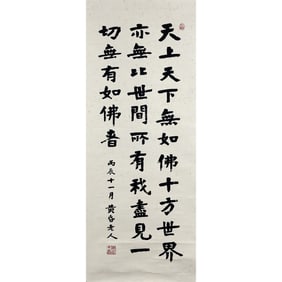 天上天下無如佛十方世界
亦無比世間所有我盡見一
切無有如佛者
丙辰十一月黄台老人